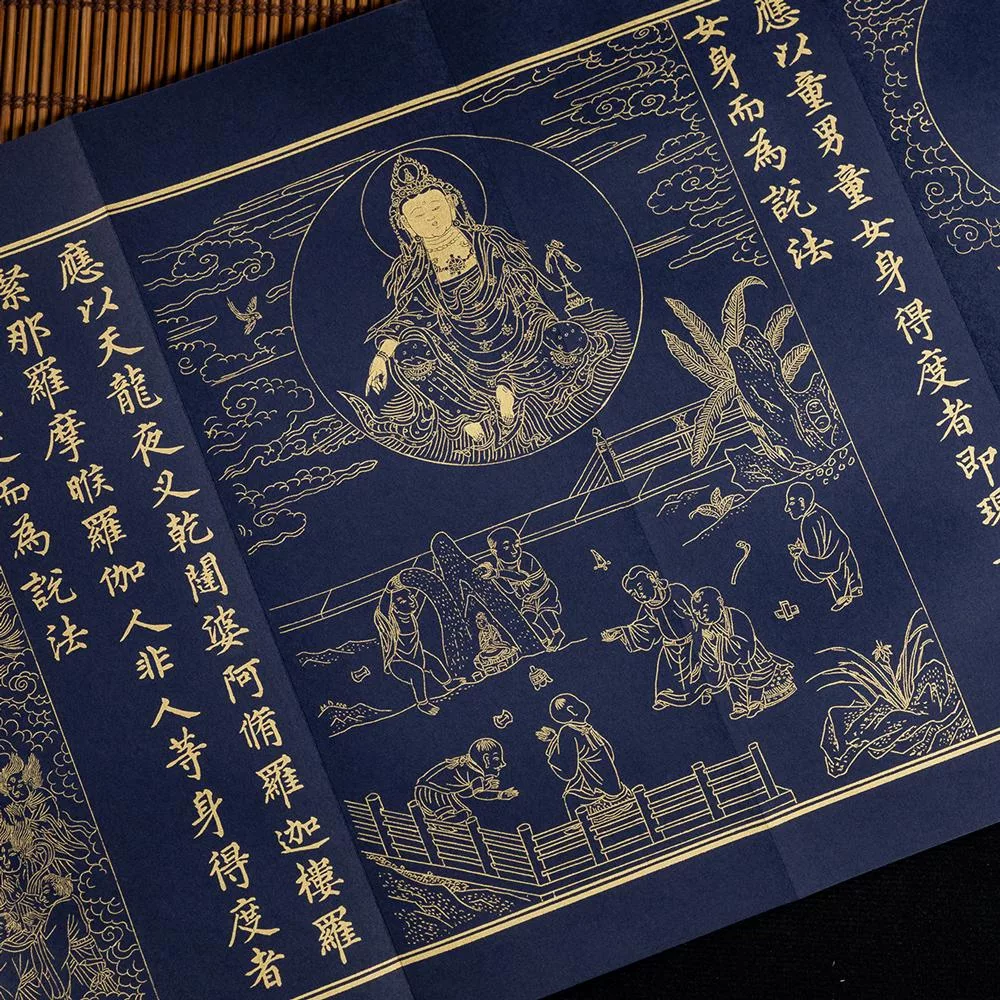 應以童男童女身得度者即現
女身而為説法
應以天龍夜叉乾闥婆阿脩羅迦樓羅
緊那羅摩睺羅伽人非人等身得度者
而為説法